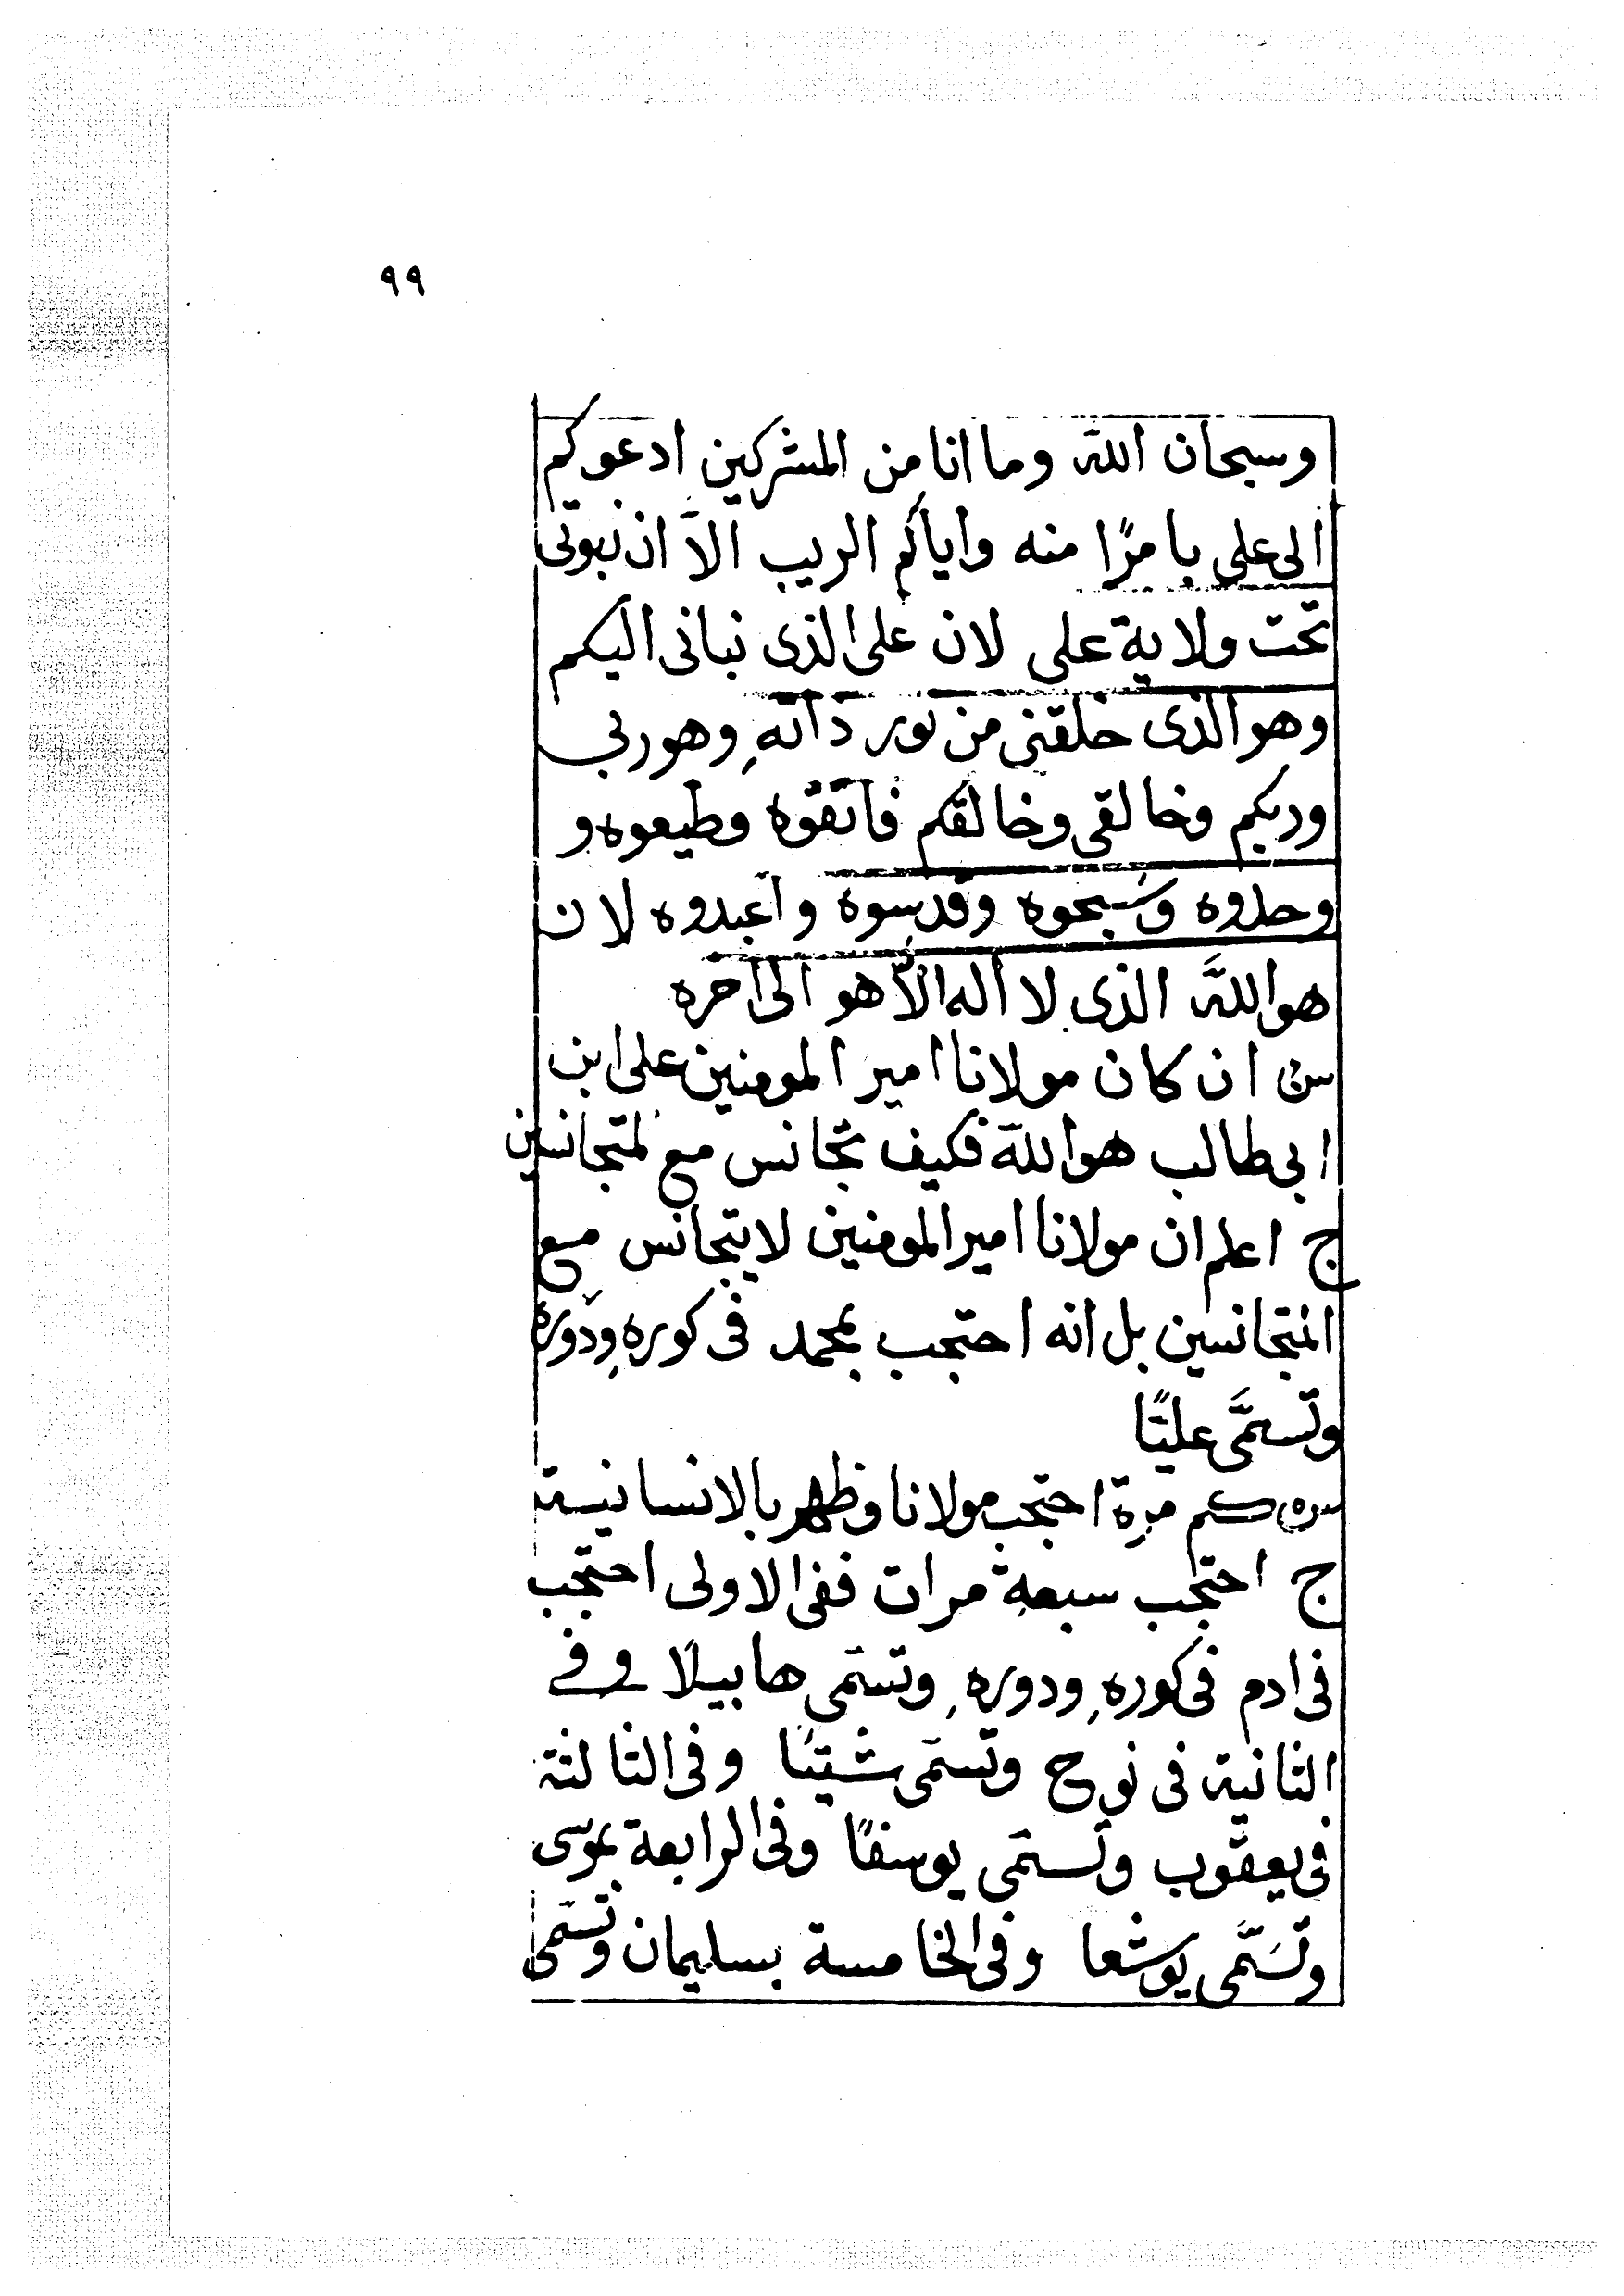 ٩٩
وسبحان الله وما انا من المشركين ادعوكم
الى على بامرًا منه واياكم الريب الآ ان نبوتى
تحت ولاية على لان على الذى نبانى اليكم
وهو الذى خلقنى من نور ذاته وهو ربي
وربكم وخالقى وخالقكم فاتقوه وطيعوه و
وحدوه وسَبحوه وقدسوه واعبدوه لان
هو اللهَ الذى لا اله الاَّ هو الى اخره
س ان كان مولانا امير المومنين على ابن
ابى طالب هو الله فكيف تجانس مع لمتجانسين
ج اعلم ان مولانا امير المومنين لا يتجانس مع
المتجانسين بل انه احتجب بمحمد فى كوره ودوره
وتسمَّى عليًّا
س كم مرة احتجب مولانا وظهر بالانسانية
ج احتجب سبعة مرات ففى الاولى احتجب
فى ادم فى كوره ودوره وتسَمى هابيلًا وفے
الثانية فى نوح وتسَمى شيتًا وفى الثالثة
فى يعقوب وتسَمى يوسفًا وفى الرابعة بموسى
وتسَمَّى يوشعا وفى الخامسة بسليمان وتسَمى